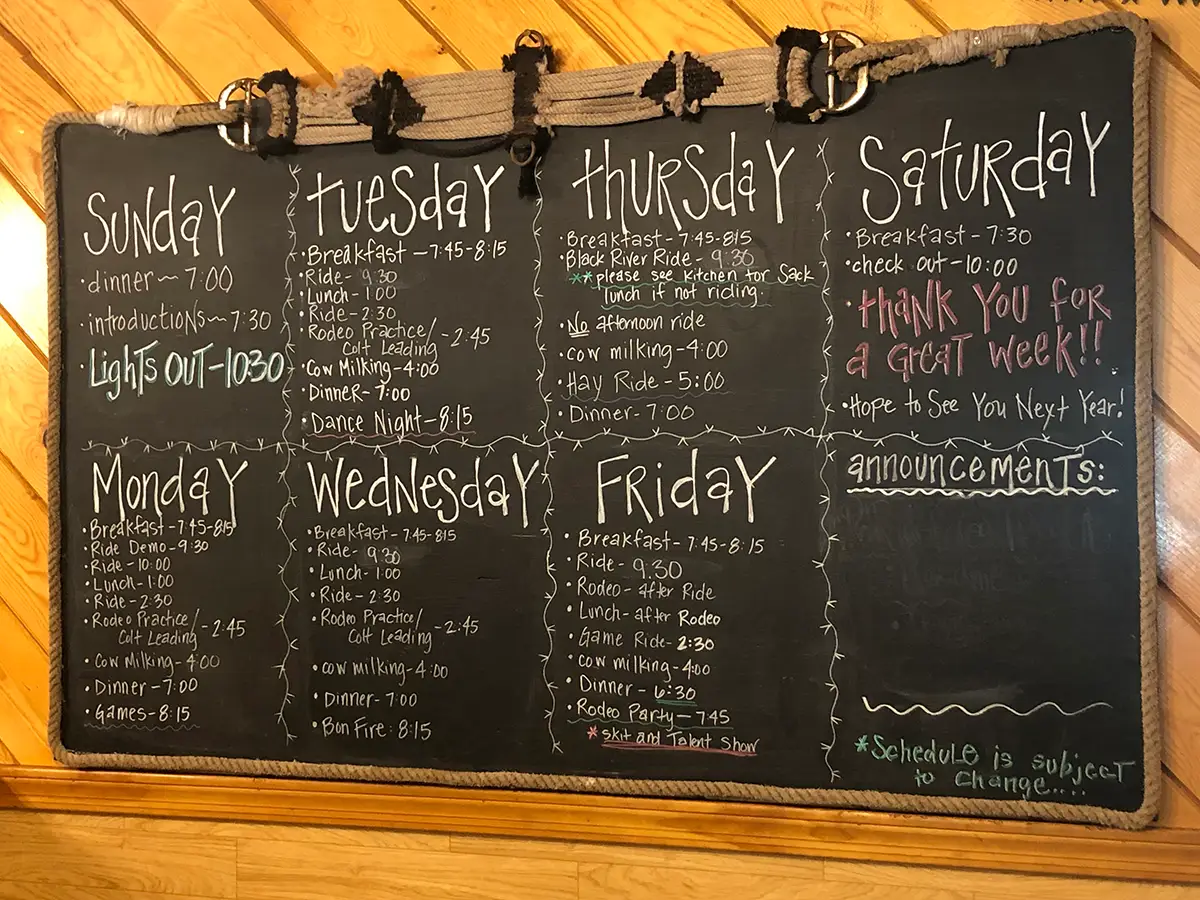 Sunday
• dinner~ 7:00
• introductions~ 7:30
• Lights Out-10:30
Monday
• Breakfast-7:45-815
• Ride Demo-9:30
• Ride-10:00
• Lunch-1:00
• Ride-2:30
• Rodeo Practice/
Colt Leading -2:45
• Cow Milking-4:00
• Dinner-7:00
• Games-8:15
Tuesday
• Breakfast -7:45-8:15
• Ride- 9:30
• Lunch-1:00
• Ride-2:30
• Rodeo Practice/
Colt Leading -2:45
• Cow Milking-4:00
• Dinner-7:00
• Dance Night-8:15
Wednesday
• Breakfast-7:45-815
• Ride- 9:30
• Lunch-1:00
• Ride-2:30
• Rodeo Practice/
Colt Leading -2:45
• cow milking-4:00
• Dinner-7:00
• Bon Fire: 8:15
Thursday
• Breakfast-7:45-815
• Black River Ride- 9:30
**please see kitchen for Sack
lunch if not riding.
• No afternoon ride
• cow milking-4:00
• Hay Ride-5:00
• Dinner-7:00
Friday
• Breakfast-7:45-8:15
• Ride- 9:30
• Rodeo-after Ride
• Lunch-after Rodeo
• Game Ride-2:30
• cow milking-4:00
• Dinner-6:30
• Rodeo Party-745
*skit and Talent Show
Saturday
• Breakfast-7:30
• check out-10:00
• thank you for
a Great week!!
• Hope to See You Next Year!
announcements:
*Schedule is subject
to change....